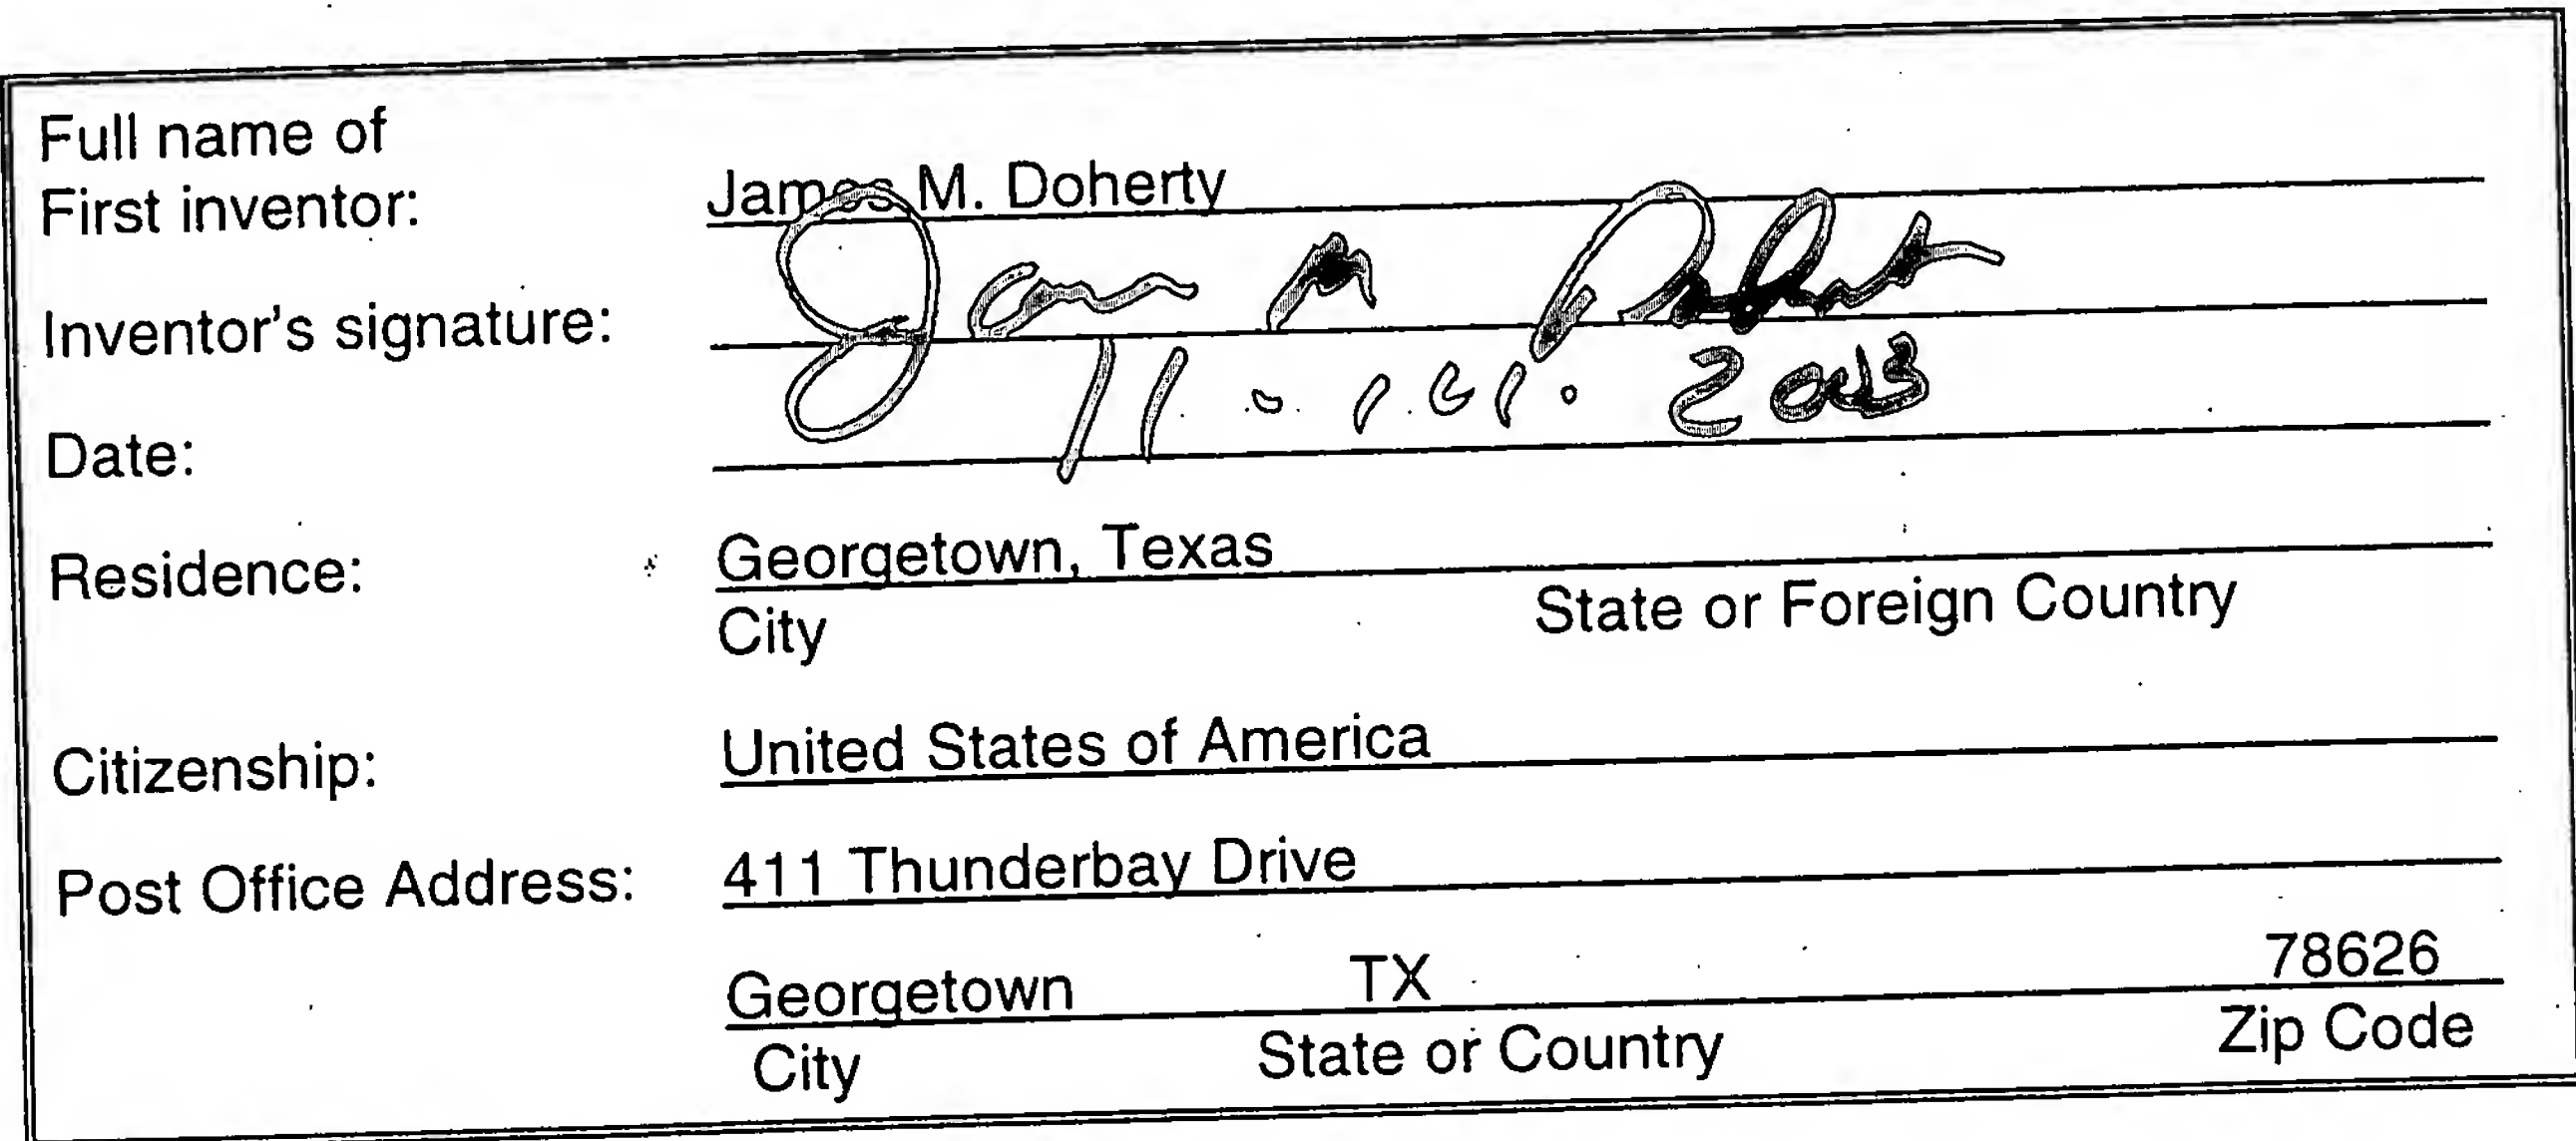 Full name of
First inventor: James M. Doherty
Inventor's signature: James M Doherty
Date: 2003
Residence: Georgetown, Texas
City State or Foreign Country
Citizenship: United States of America
Post Office Address: 411 Thunderbay Drive
Georgetown TX 78626
City State or Country Zip Code